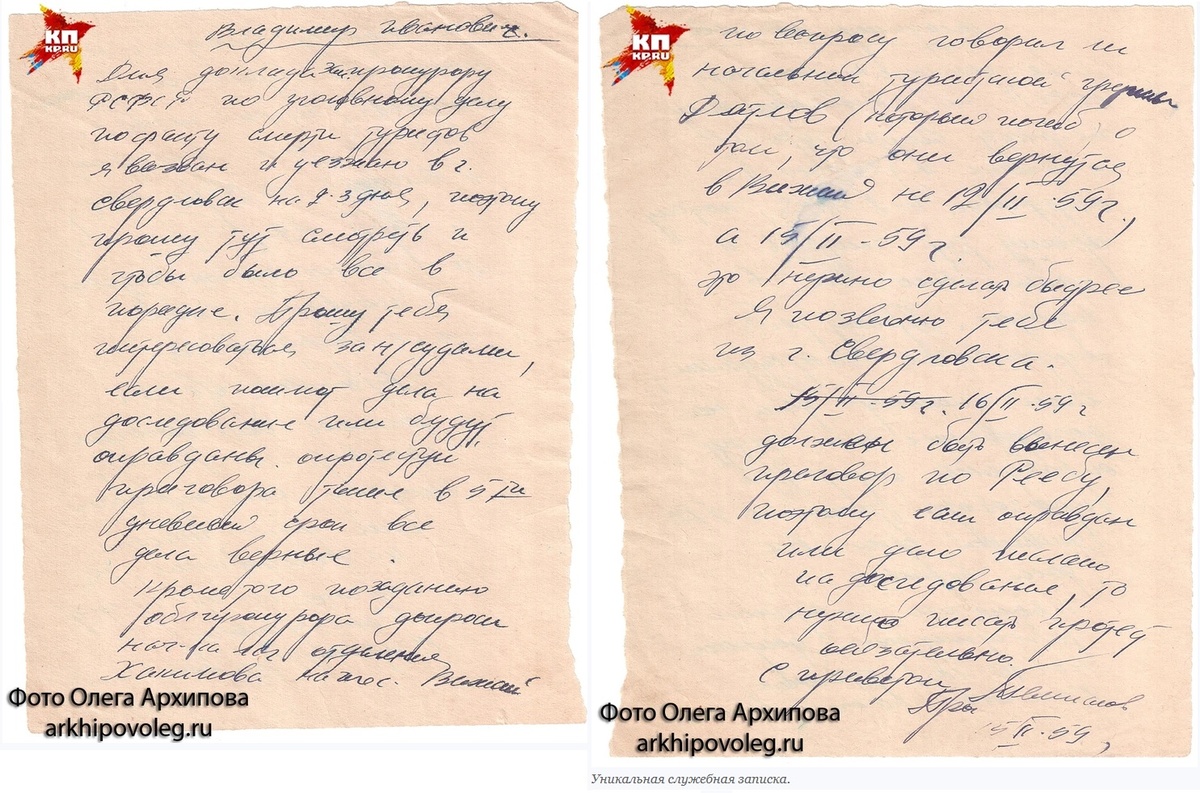 Владимир Иванович.
Для доклада зам. прокурору
РСФСР по уголовному делу
по факту смерти туристов
я вызван и уезжаю в г.
Свердловск на 2-3 дня, поэтому
прошу тут смотреть и
чтобы было все в
порядке. Прошу тебя
интересоваться за н/судами,
если пошлют дела на
доследование или будут
оправданы опротестуй
приговора также в 5 ти
дневный срок все
дела верные.
Кроме того по заданию
облпрокурора допроси
нач-ка л/п отделения
Хакимова на пос. Вижай
по вопросу говорил ли
начальник туристкой группы
Дятлов (который погиб) о
том, что они вернутся
в Вижай не 12/II-59 г.,
а 15/II-59 г.
это нужно сделать быстрее
Я позвоню тебе
из г. Свердловска.
15/II-59 г. 16/II-59 г
должен быть вынесен
приговор по Реебу,
поэтому если оправдан
или дело послано
на доследование, то
нужно писать протест
обязательно.
С приветом
15/II-59,
КП
KP.RU
КП
KP.RU
Фото Олега Архипова
arkhipovoleg.ru
Фото Олега Архипова
arkhipovoleg.ru
Уникальная служебная записка.